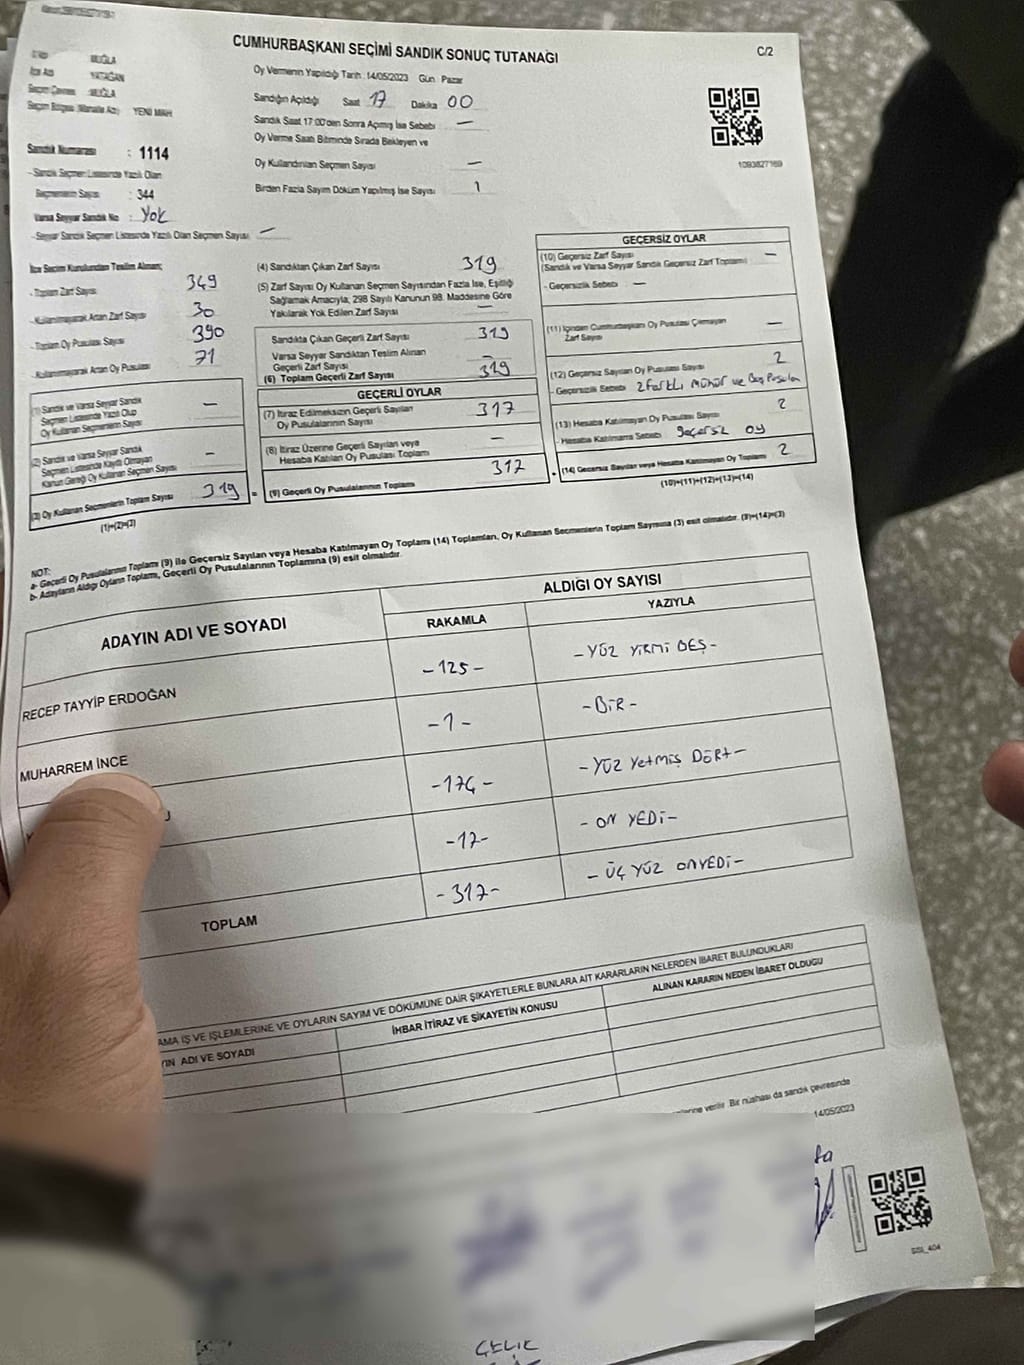 CUMHURBAŞKANI SEÇİMİ SANDIK SONUÇ TUTANAĞI
C/2
İl Adı MUĞLA
İlçe Adı YATAĞAN
Seçim Çevresi MUĞLA
Seçim Bölgesi (Mahalle Adı) YENİ MAH
Sandık Numarası : 1114
- Sandık Seçmen Listesinde Yazılı Olan
Seçmenlerin Sayısı : 344
Varsa Seyyar Sandık No : Yok
- Seyyar Sandık Seçmen Listesinde Yazılı Olan Seçmen Sayısı —
Oy Vermenin Yapıldığı Tarih : 14/05/2023 Gün Pazar
Sandığın Açıldığı Saat 17 Dakika 00
Sandık Saat 17:00'den Sonra Açılmış İse Sebebi —
Oy Verme Saati Bitiminde Sırada Bekleyen ve
Oy Kullandırılan Seçmen Sayısı —
Birden Fazla Sayım Döküm Yapılmış İse Sayısı 1
1093827169
İlçe Seçim Kurulundan Teslim Alınan;
- Toplam Zarf Sayısı 349
- Kullanılmayarak Artan Zarf Sayısı 30
- Toplam Oy Pusulası Sayısı 390
- Kullanılmayarak Artan Oy Pusulası 71
(1) Sandık ve Varsa Seyyar Sandık
Seçmen Listesinde Yazılı Olup
Oy Kullanan Seçmenlerin Sayısı —
(2) Sandık ve Varsa Seyyar Sandık
Seçmen Listesinde Kayıtlı Olmayan
Kanun Gereği Oy Kullanan Seçmen Sayısı —
(3) Oy Kullanan Seçmenlerin Toplam Sayısı 319
(1)+(2)=(3)
(4) Sandıktan Çıkan Zarf Sayısı 319
(5) Zarf Sayısı Oy Kullanan Seçmen Sayısından Fazla İse, Eşitliği
Sağlamak Amacıyla, 298 Sayılı Kanunun 98. Maddesine Göre
Yakılarak Yok Edilen Zarf Sayısı —
Sandıkta Çıkan Geçerli Zarf Sayısı 319
Varsa Seyyar Sandıktan Teslim Alınan
Geçerli Zarf Sayısı —
(6) Toplam Geçerli Zarf Sayısı 319
GEÇERLİ OYLAR
(7) İtiraz Edilmeksizin Geçerli Sayılan
Oy Pusulalarının Sayısı 317
(8) İtiraz Üzerine Geçerli Sayılan veya
Hesaba Katılan Oy Pusulası Toplamı —
(9) Geçerli Oy Pusulalarının Toplamı 317
GEÇERSİZ OYLAR
(10) Geçersiz Zarf Sayısı —
(Sandık ve Varsa Seyyar Sandık Geçersiz Zarf Toplamı)
- Geçersizlik Sebebi —
(11) İçinden Cumhurbaşkanı Oy Pusulası Çıkmayan
Zarf Sayısı —
(12) Geçersiz Sayılan Oy Pusulası Sayısı 2
- Geçersizlik Sebebi 2 farklı mühür ve Boş Pusula
(13) Hesaba Katılmayan Oy Pusulası Sayısı 2
- Hesaba Katılmama Sebebi geçersiz oy
(14) Geçersiz Sayılan veya Hesaba Katılmayan Oy Toplamı 2
(10)+(11)+(12)+(13)=(14)
NOT:
a- Geçerli Oy Pusulalarının Toplamı (9) ile Geçersiz Sayılan veya Hesaba Katılmayan Oy Toplamı (14) Toplamları, Oy Kullanan Seçmenlerin Toplam Sayısına (3) eşit olmalıdır. (9)+(14)=(3)
b- Adayların Aldığı Oyların Toplamı, Geçerli Oy Pusulalarının Toplamına (9) eşit olmalıdır.
ADAYIN ADI VE SOYADI
ALDIĞI OY SAYISI
RAKAMLA YAZIYLA
RECEP TAYYİP ERDOĞAN -125- -YÜZ YİRMİ BEŞ-
MUHARREM İNCE -1- -BİR-
-174- -YÜZ YETMİŞ DÖRT-
-17- -ON YEDİ-
TOPLAM -317- -ÜÇ YÜZ ONYEDİ-
AMA İŞ VE İŞLEMLERİNE VE OYLARIN SAYIM VE DÖKÜMÜNE DAİR ŞİKAYETLERLE BUNLARA AİT KARARLARIN NELERDEN İBARET BULUNDUKLARI
ADI VE SOYADI İHBAR İTİRAZ VE ŞİKAYETİN KONUSU ALINAN KARARIN NEDEN İBARET OLDUĞU
verilir. Bir nüshası da sandık çevresinde
14/05/2023
ÇELİK